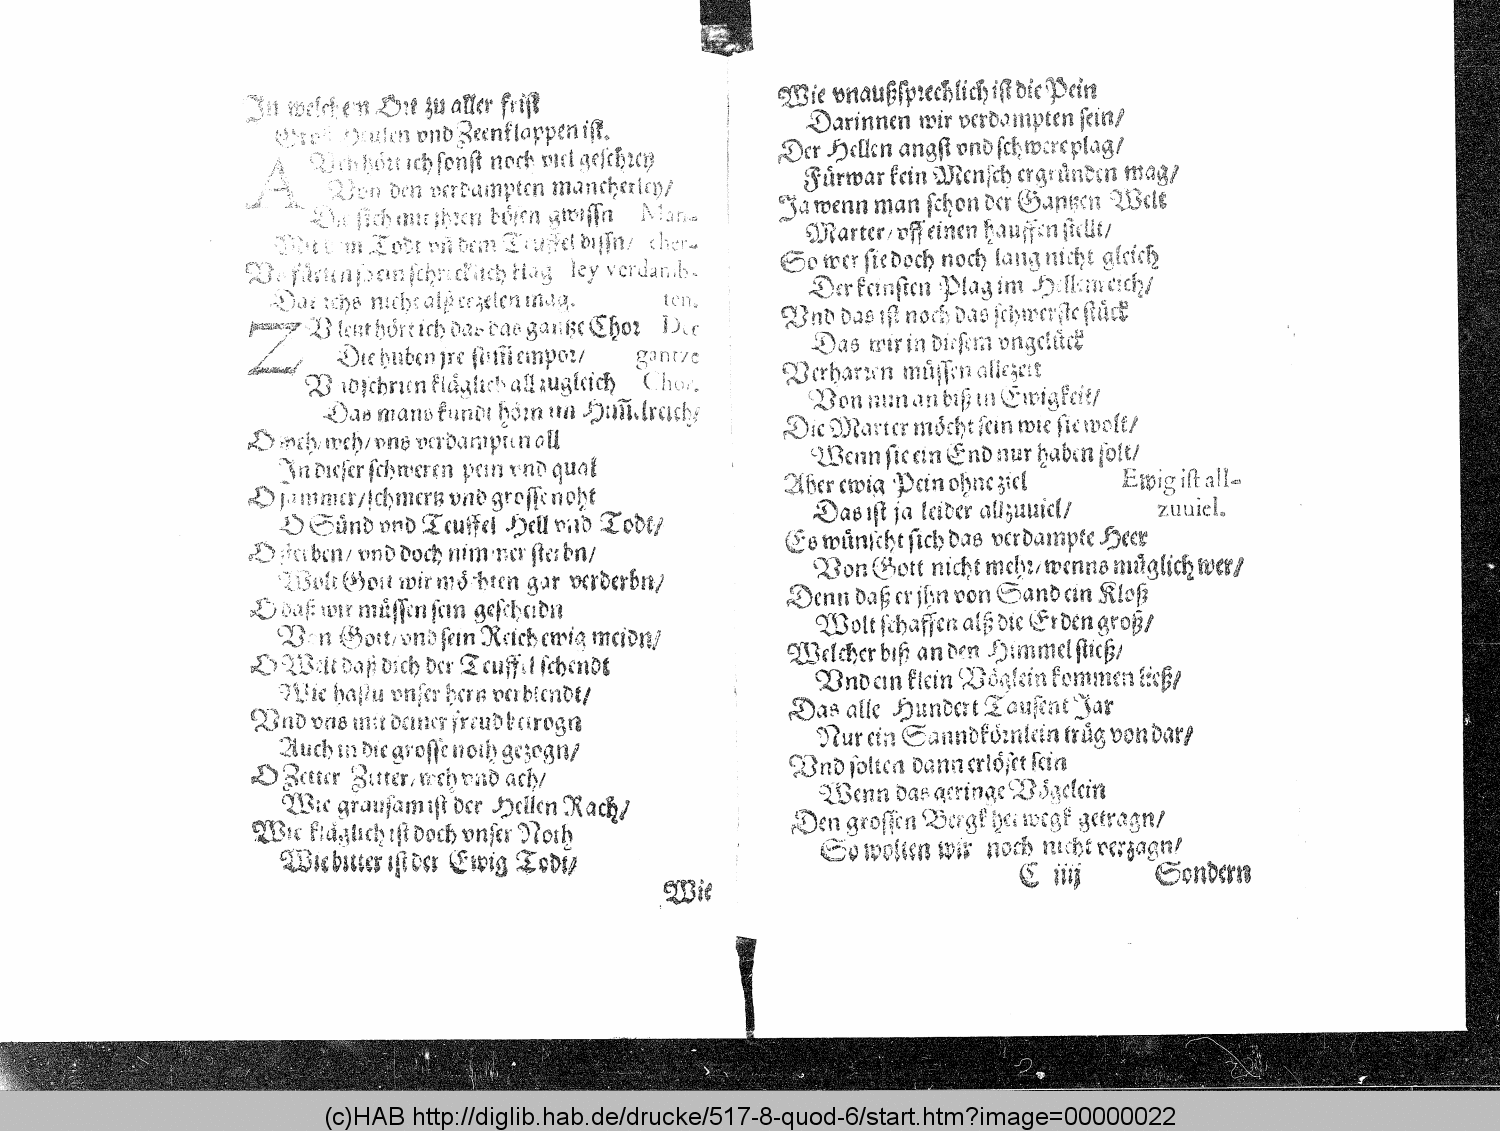 In welchem Ort zu aller frist
Groß Heulen vnd Zeenklappen ist.
AVch hört ich sonst noch viel geschrey
Von den verdampten mancherley/
Die sich mit jhren bösen gwissn
Man-
Mit dem Todt vñ dem Teuffel bissn/
cher-
schrecklich klag
ley verdamb-
Das ichs nicht alß erzelen mag.
ten.
ZV letzt hört ich das das gantze Chor
Der
Die huben jre stim̃ empor/
gantze
Vnd schrien kläglich all zugleich
Chor.
Das mans kundt hörn im Him̃elreich/
O weh/ weh/ vns verdampten all
In dieser schweren pein vnd qual
O jammer/ schmertz vnd grosse noht
O Sünd vnd Teuffel Hell vnd Todt/
O sterben/ vnd doch nimmer sterbn/
Wolt Gott wir möchten gar verderbn/
O daß wir müssen sein gescheidn
Von Gott/ vnd sein Reich ewig meidn/
O Welt daß dich der Teuffel schendt
Wie hastu vnser hertz verblendt/
Vnd vns mit deiner freud betrogn
Auch in die grosse noth gezogn/
O Zetter Zitter/ weh vnd ach/
Wie grausam ist der Hellen Rach/
Wie kläglich ist doch vnser Noth
Wie bitter ist der Ewig Todt/
Wie
Wie vnaußsprechlich ist die Pein
Darinnen wir verdampten sein/
Der Hellen angst vnd schwere plag/
Fürwar kein Mensch ergründen mag/
Ja wenn man schon der Gantzen Welt
Marter/ vff einen hauffen stellt/
So wer sie doch noch lang nicht gleich
Der keinsten Plag im Hellenreich/
Vnd das ist noch das schwerste stück
Das wir in diesem vngelück
Verharren müssen allezeit
Von nun an biß in Ewigkeit/
Die Marter möcht sein wie sie wolt/
Wenn sie ein End nur haben solt/
Aber ewig Pein ohne ziel
Ewig ist all-
Das ist ja leider allzuuiel/
zuuiel.
Es wünscht sich das verdampte Heer
Von Gott nicht mehr/ wenns müglich wer/
Denn daß er jhn von Sand ein Kloß
Wolt schaffen alß die Erden groß/
Welcher biß an den Himmel stieß/
Vnd ein klein Vöglein kommen ließ/
Das alle Hundert Tausent Jar
Nur ein Sanndkörnlein trüg von dar/
Vnd solten dann erlöset sein
Wenn das geringe Vögelein
Den grossen Bergk herwegk getragn/
So wolten wir noch nicht verzagn/
C iiij
Sondern
(c)HAB http://diglib.hab.de/drucke/517-8-quod-6/start.htm?image=00000022